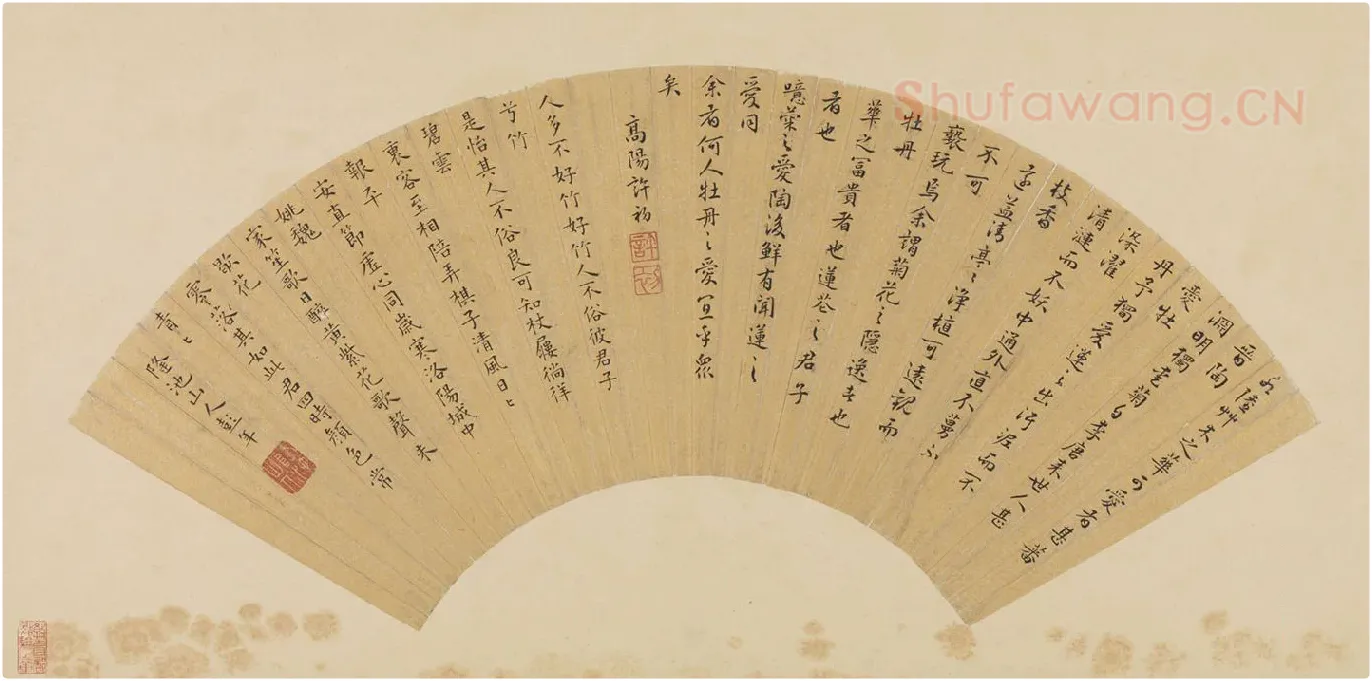 水陸艸木之華可愛者甚蕃
晉陶
淵明獨爱菊自李唐来世人甚
愛牡
丹予獨愛蓮之出淤泥而不
染濯
清漣而不妖中通外直不蔓不
枝香
遠益清亭〻淨植可遠觀而
不可
褻玩焉余謂菊花之隱逸者也
牡丹
華之冨貴者也蓮花之君子
者也
噫菊之愛陶後鮮有聞蓮之
愛同
余者何人牡丹之愛宜乎眾
矣
高陽許初
許初
人多不好竹好竹人不俗彼君子
兮竹
是怡其人不俗良可知杖屨徜徉
碧雲
裏客至相陪弄棋子清風日〻
報平
安直節虚心同歲寒洛陽城中
姚魏
家笙歌日醉黄紫花歌聲未
歇花
零落其如此君四時顔色常
青〻
隆池山人彭年
Shufawang.CN